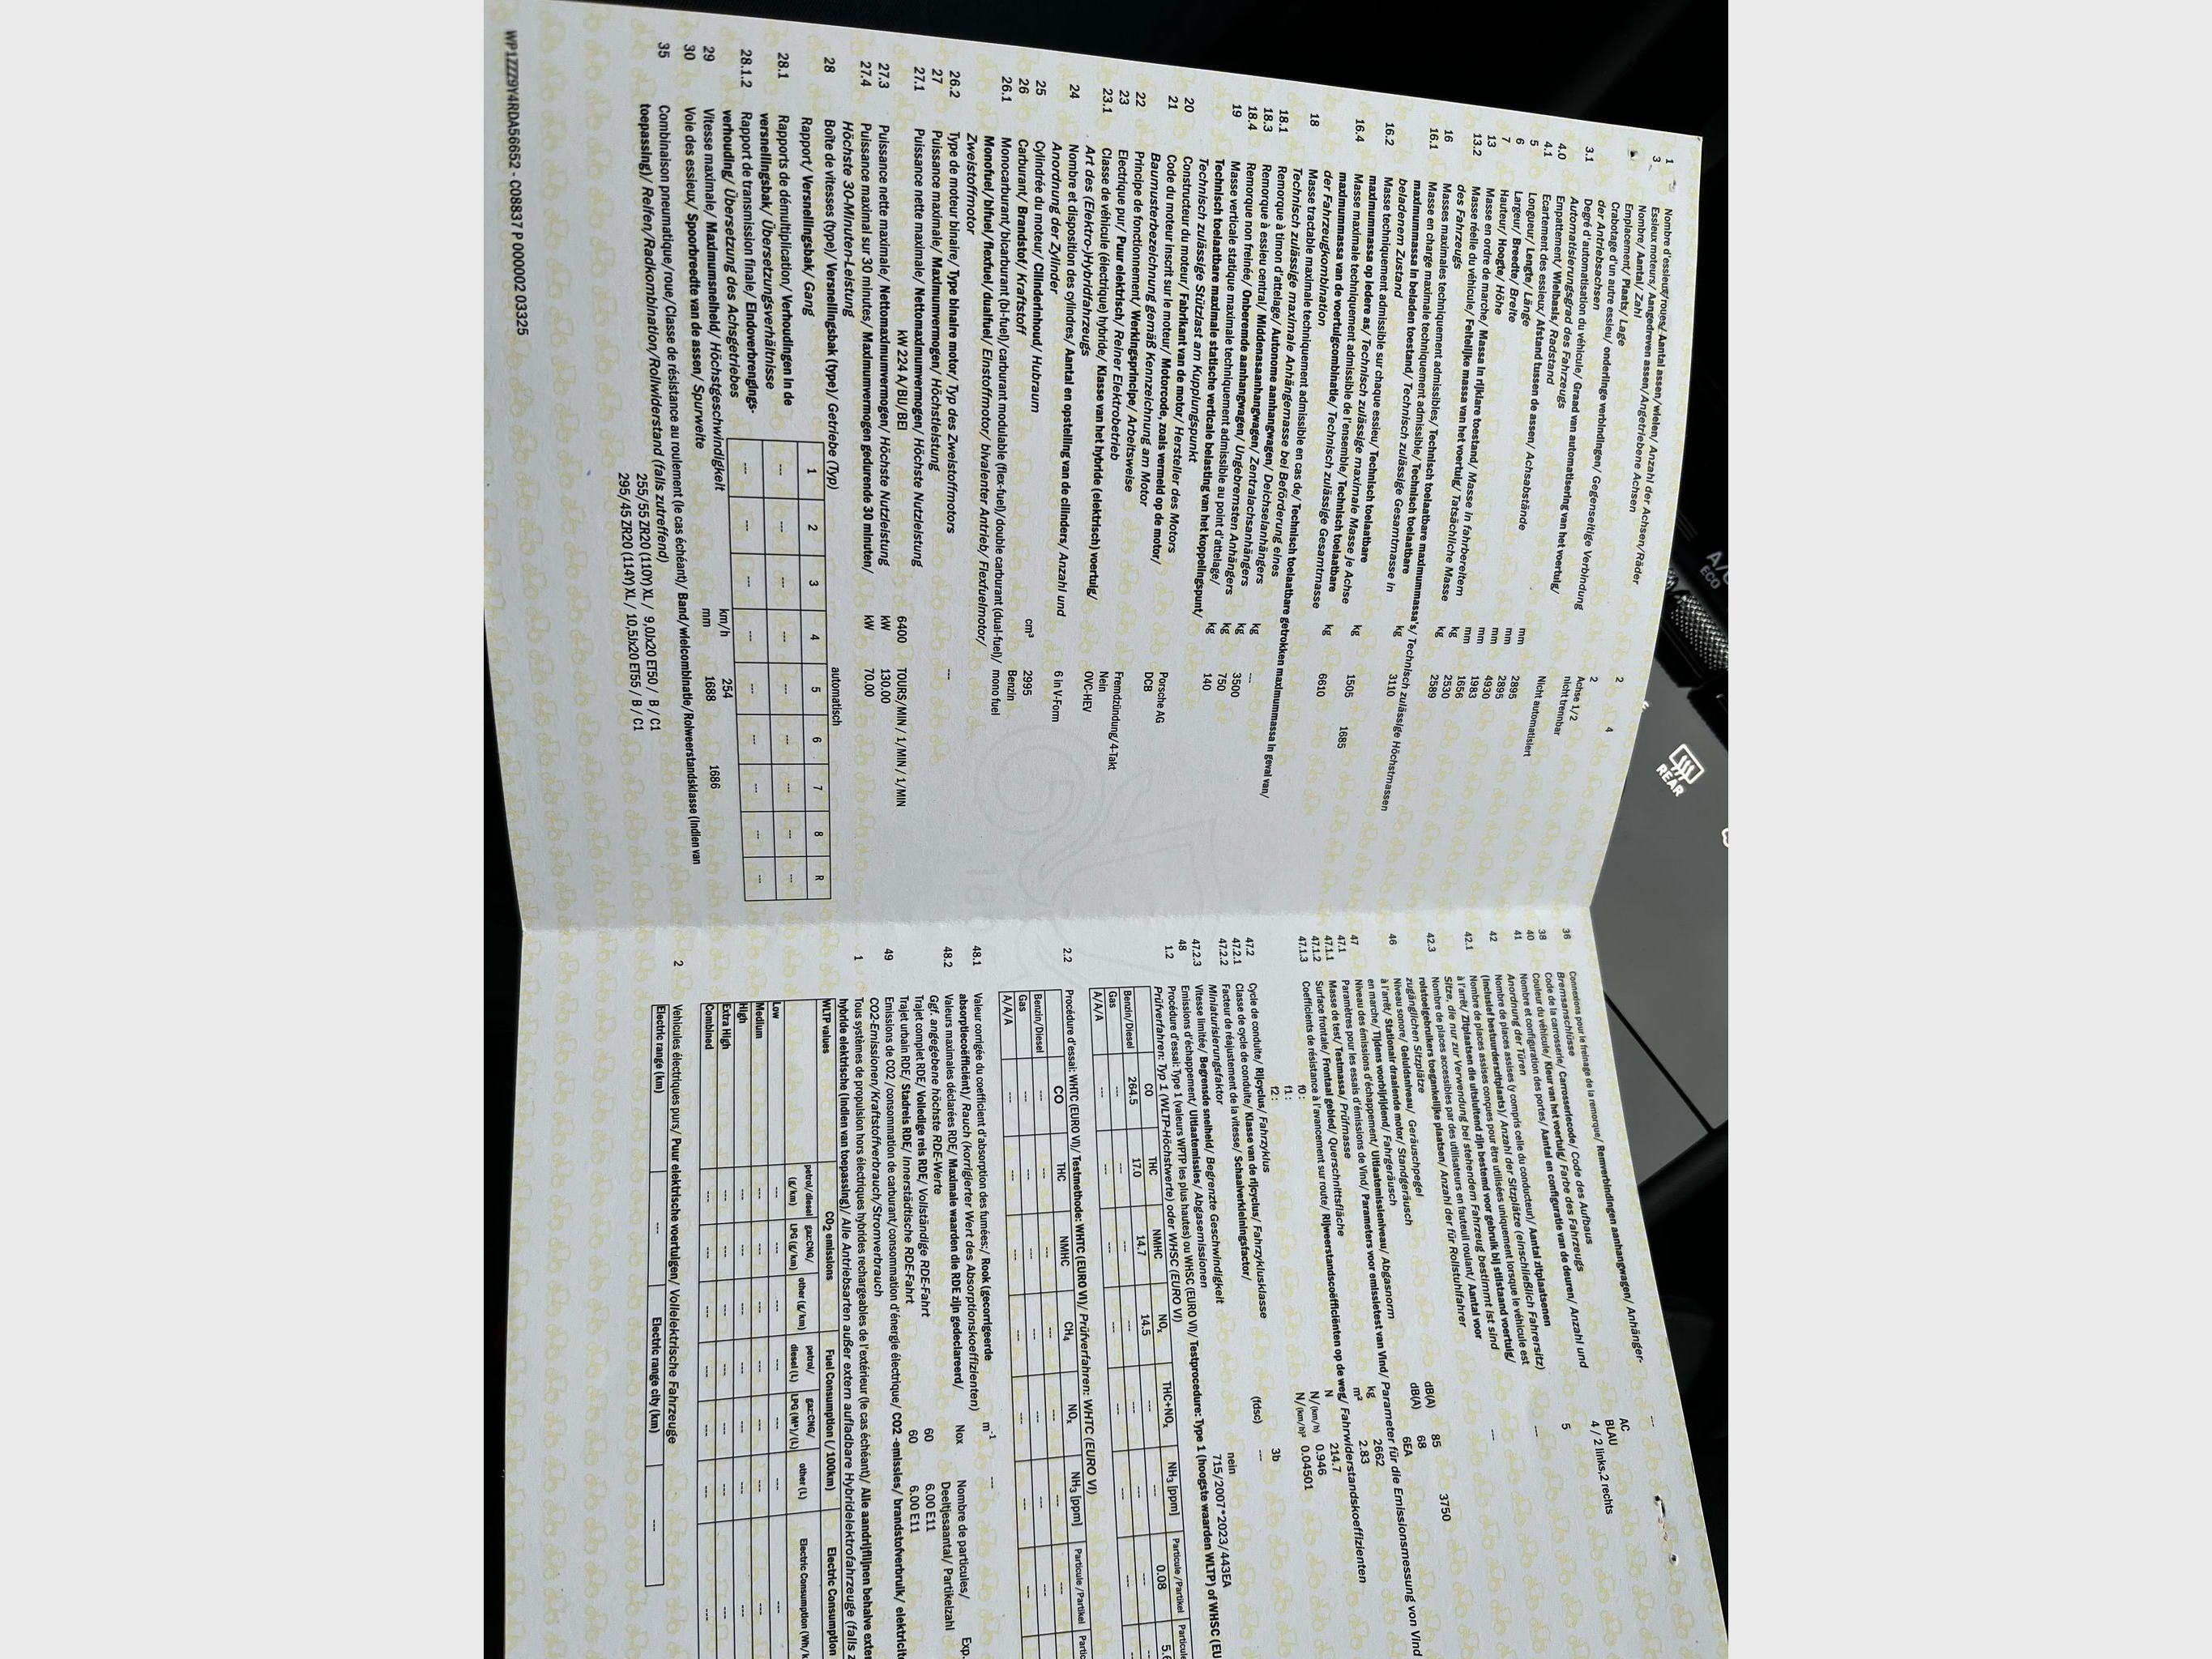 1 Nombre d'essieux/roues/ Aantal assen/wielen/ Anzahl der Achsen/Räder 2 4
3 Essieux moteurs/ Aangedreven assen/Angetriebene Achsen
Nombre/ Aantal/ Zahl 2
Emplacement/ Plaats/ Lage Achse 1/2
Crabotage d'un autre essieu/ onderlinge verbindingen/ Gegenseitige Verbindung nicht trennbar
der Antriebsachsen
3.1 Degré d'automatisation du véhicule/ Graad van automatisering van het voertuig/ Nicht automatisiert
Automatisierungsgrad des Fahrzeugs
4.0 Empattement/ Wielbasis/ Radstand mm 2895
4.1 Ecartement des essieux/ Afstand tussen de assen/ Achsabstände mm 2895
5 Longueur/ Lengte/ Länge mm 4930
6 Largeur/ Breedte/ Breite mm 1983
7 Hauteur/ Hoogte/ Höhe mm 1656
13 Masse en ordre de marche/ Massa in rijklare toestand/ Masse in fahrbereitem kg 2530
13.2 Masse réelle du véhicule/ Feitelijke massa van het voertuig/ Tatsächliche Masse kg 2589
des Fahrzeugs
16 Masses maximales techniquement admissibles/ Technisch toelaatbare maximummassa's/ Technisch zulässige Höchstmassen
16.1 Masse en charge maximale techniquement admissible/ Technisch toelaatbare kg 3110
maximummassa in beladen toestand/ Technisch zulässige Gesamtmasse in
beladenem Zustand
16.2 Masse techniquement admissible sur chaque essieu/ Technisch toelaatbare kg 1505 1685
maximummassa op iedere as/ Technisch zulässige maximale Masse je Achse
16.4 Masse maximale techniquement admissible de l'ensemble/ Technisch toelaatbare kg 6610
maximumassa van de voertuigcombinatie/ Technisch zulässige Gesamtmasse
der Fahrzeugkombination
18 Masse tractable maximale techniquement admissible en cas de/ Technisch toelaatbare getrokken maximummassa in geval van/
Technisch zulässige maximale Anhängemasse bei Beförderung eines
18.1 Remorque à timon d'attelage/ Autonome aanhangwagen/ Deichselanhängers kg ---
18.3 Remorque à essieu central/ Middenasaanhangwagen/ Zentralachsanhängers kg 3500
18.4 Remorque non freinée/ Onberemde aanhangwagen/ Ungebremsten Anhängers kg 750
19 Masse verticale statique maximale techniquement admissible au point d'attelage/ kg 140
Technisch toelaatbare maximale statische verticale belasting van het koppelingspunt/
Technisch zulässige Stützlast am Kupplungspunkt
20 Constructeur du moteur/ Fabrikant van de motor/ Hersteller des Motors Porsche AG
21 Code du moteur inscrit sur le moteur/ Motorcode, zoals vermeld op de motor/ DCB
Baumusterbezeichnung gemäß Kennzeichnung am Motor
22 Principe de fonctionnement/ Werkingsprincipe/ Arbeitsweise Fremdzündung/4-Takt
23 Electrique pur/ Puur elektrisch/ Reiner Elektrobetrieb Nein
23.1 Classe de véhicule (électrique) hybride/ Klasse van het hybride (elektrisch) voertuig/ OVC-HEV
Art des (Elektro-)Hybridfahrzeugs
24 Nombre et disposition des cylindres/ Aantal en opstelling van de cilinders/ Anzahl und 6 in V-Form
Anordnung der Zylinder
25 Cylindrée du moteur/ Cilinderinhoud/ Hubraum cm³ 2995
26 Carburant/ Brandstof/ Kraftstoff Benzin
26.1 Monocarburant/bicarburant (bi-fuel)/carburant modulable (flex-fuel)/double carburant (dual-fuel)/ mono fuel
Monofuel/bifuel/flexfuel/dualfuel/ Einstoffmotor/ bivalenter Antrieb/ Flexfuelmotor/
Zweistoffmotor
26.2 Type de moteur binaire/ Type binaire motor/ Typ des Zweistoffmotors ---
27 Puissance maximale/ Maximumvermogen/ Höchstleistung
27.1 Puissance nette maximale/ Nettomaximumvermogen/ Höchste Nutzleistung
kW 224 A/BIJ/BEI 6400 TOURS/MIN / 1/MIN / 1/MIN
27.3 Puissance nette maximale/ Nettomaximumvermogen/ Höchste Nutzleistung kW 130.00
27.4 Puissance maximal sur 30 minutes/ Maximumvermogen gedurende 30 minuten/ kW 70.00
Höchste 30-Minuten-Leistung
28 Boîte de vitesses (type)/ Versnellingsbak (type)/ Getriebe (Typ) automatisch
Rapport/ Versnellingsbak/ Gang 1 2 3 4 5 6 7 8 R
28.1 Rapports de démultiplication/ Verhoudingen in de --- --- --- --- --- --- --- --- ---
versnellingsbak/ Übersetzungsverhältnisse
28.1.2 Rapport de transmission finale/ Eindoverbrengings- --- --- --- --- --- --- --- --- ---
verhouding/ Übersetzung des Achsgetriebes
29 Vitesse maximale/ Maximumsnelheid/ Höchstgeschwindigkeit km/h 254
30 Voie des essieux/ Spoorbreedte van de assen/ Spurweite mm 1688 1686
35 Combinaison pneumatique/roue/Classe de résistance au roulement (le cas échéant)/ Band/wielcombinatie/Rolweerstandsklasse (indien van
toepassing)/ Reifen/Radkombination/Rollwiderstand (falls zutreffend)
255/55 ZR20 (110Y) XL / 9,0Jx20 ET50 / B / C1
295/45 ZR20 (114Y) XL / 10,5Jx20 ET55 / B / C1
WP1ZZZ9Y4RDA56652 - C08837 P 000002 03325
36 Connexions pour le freinage de la remorque/ Remverbindingen aanhangwagen/ Anhänger- ---
Bremsanschlüsse
38 Code de la carrosserie/ Carrosseriecode/ Code des Aufbaus AC
40 Couleur du véhicule/ Kleur van het voertuig/ Farbe des Fahrzeugs BLAU
41 Nombre et configuration des portes/ Aantal en configuratie van de deuren/ Anzahl und 4 / 2 links,2 rechts
Anordnung der Türen
42 Nombre de places assises (y compris celle du conducteur)/ Aantal zitplaatsenen 5
(inclusief bestuurderszitplaats)/ Anzahl der Sitzplätze (einschließlich Fahrersitz)
42.1 Nombre de places assises conçues pour être utilisées uniquement lorsque le véhicule est ---
à l'arrêt/ Zitplaatsen die uitsluitend zijn bestemd voor gebruik bij stilstaand voertuig/
Sitze, die nur zur Verwendung bei stehendem Fahrzeug bestimmt ist sind
42.3 Nombre de places accessibles par des utilisateurs en fauteuil roulant/ Aantal voor ---
rolstoelgebruikers toegankelijke plaatsen/ Anzahl der für Rollstuhlfahrer
zugänglichen Sitzplätze
46 Niveau sonore/ Geluidsniveau/ Geräuschpegel
à l'arrêt/ Stationair draaiende motor/ Standgeräusch dB(A) 85 3750
en marche/ Tijdens voorbijrijdend/ Fahrgeräusch dB(A) 68
47 Niveau des émissions d'échappement/ Uitlaatemissieniveau/ Abgasnorm 6EA
47.1 Paramètres pour les essais d'émissions de Vind/ Parameters voor emissietest van Vind/ Parameter für die Emissionsmessung von Vind
47.1.1 Masse de test/ Testmassa/ Prüfmasse kg 2662
47.1.2 Surface frontale/ Frontaal gebied/ Querschnittsfläche m² 2.83
47.1.3 Coefficients de résistance à l'avancement sur route/ Rijweerstandscoëfficiënten op de weg/ Fahrwiderstandskoeffizienten
f0 : N 214.7
f1 : N/(km/h) 0.946
f2 : N/(km/h)² 0.04501
47.2 Cycle de conduite/ Rijcyclus/ Fahrzyklus
47.2.1 Classe de cycle de conduite/ Klasse van de rijcyclus/ Fahrzyklusklasse 3b
47.2.2 Facteur de réajustement de la vitesse/ Schaalverkleiningsfactor/ (fdsc) ---
Miniaturisierungsfaktor
47.2.3 Vitesse limitée/ Begrensde snelheid/ Begrenzte Geschwindigkeit nein
48 Emissions d'échappement/ Uitlaatemissies/ Abgasemissionen 715/2007*2023/443EA
1.2 Procédure d'essai: Type 1 (valeurs WPTP les plus hautes) ou WHSC (EURO VI)/ Testprocedure: Type 1 (hoogste waarden WLTP) of WHSC (EU
Prüfverfahren: Typ 1 (WLTP-Höchstwerte) oder WHSC (EURO VI)
CO THC NMHC NOx THC+NOx NH3 [ppm] Particule/Partikel Particule
Benzin/Diesel 264.5 17.0 14.7 14.5 --- --- 0.08 5.6
Gas --- --- --- --- --- --- --- --
A/A/A --- --- --- --- --- --- ---
2.2 Procédure d'essai: WHTC (EURO VI)/ Testmethode: WHTC (EURO VI)/ Prüfverfahren: WHTC (EURO VI)
CO THC NMHC CH4 NOx NH3 [ppm] Particule/Partikel Partic
Benzin/Diesel --- --- --- --- --- --- ---
Gas --- --- --- --- --- --- ---
A/A/A --- --- --- --- --- --- ---
48.1 Valeur corrigée du coefficient d'absorption des fumées:/ Rook (gecorrigeerde m⁻¹ ---
absorptiecoëfficiënt)/ Rauch (korrigierter Wert des Absorptionskoeffizienten)
48.2 Valeurs maximales déclarées RDE/ Maximale waarden die RDE zijn gedeclareerd/ Nox Nombre de particules/ Exp.
Ggf. angegebene höchste RDE-Werte Deeltjesaantal/ Partikelzahl
Trajet complet RDE/ Volledige reis RDE/ Vollständige RDE-Fahrt 60 6.00 E11
Trajet urbain RDE/ Stadreis RDE/ Innerstädtische RDE-Fahrt 60 6.00 E11
49 Emissions de CO2 /consommation de carburant/consommation d'énergie électrique/ CO2 -emissies/ brandstofverbruik/ elektricit
CO2-Emissionen/Kraftstoffverbrauch/Stromverbrauch
1 Tous systèmes de propulsion hors électriques hybrides rechargeables de l'extérieur (le cas échéant)/ Alle aandrijflijnen behalve exte
hybride elektrische (indien van toepassing)/ Alle Antriebsarten außer extern aufladbare Hybridelektrofahrzeuge (falls z
WLTP values CO2 emissions Fuel Consumption (/100km) Electric Consumption
petrol/diesel (g/km) gaz:CNG/ LPG (g/km) other (g/km) petrol/ diesel (L) gaz:CNG/ LPG (M³)/(L) other (L) Electric Consumption (Wh/k
Low --- --- --- --- --- --- ---
Medium --- --- --- --- --- --- ---
High --- --- --- --- --- --- ---
Extra High --- --- --- --- --- --- ---
Combined --- --- --- --- --- --- ---
2 Véhicules électriques purs/ Puur elektrische voertuigen/ Vollelektrische Fahrzeuge
Electric range (km) --- Electric range city (km) ---
A/C
ECO
REAR